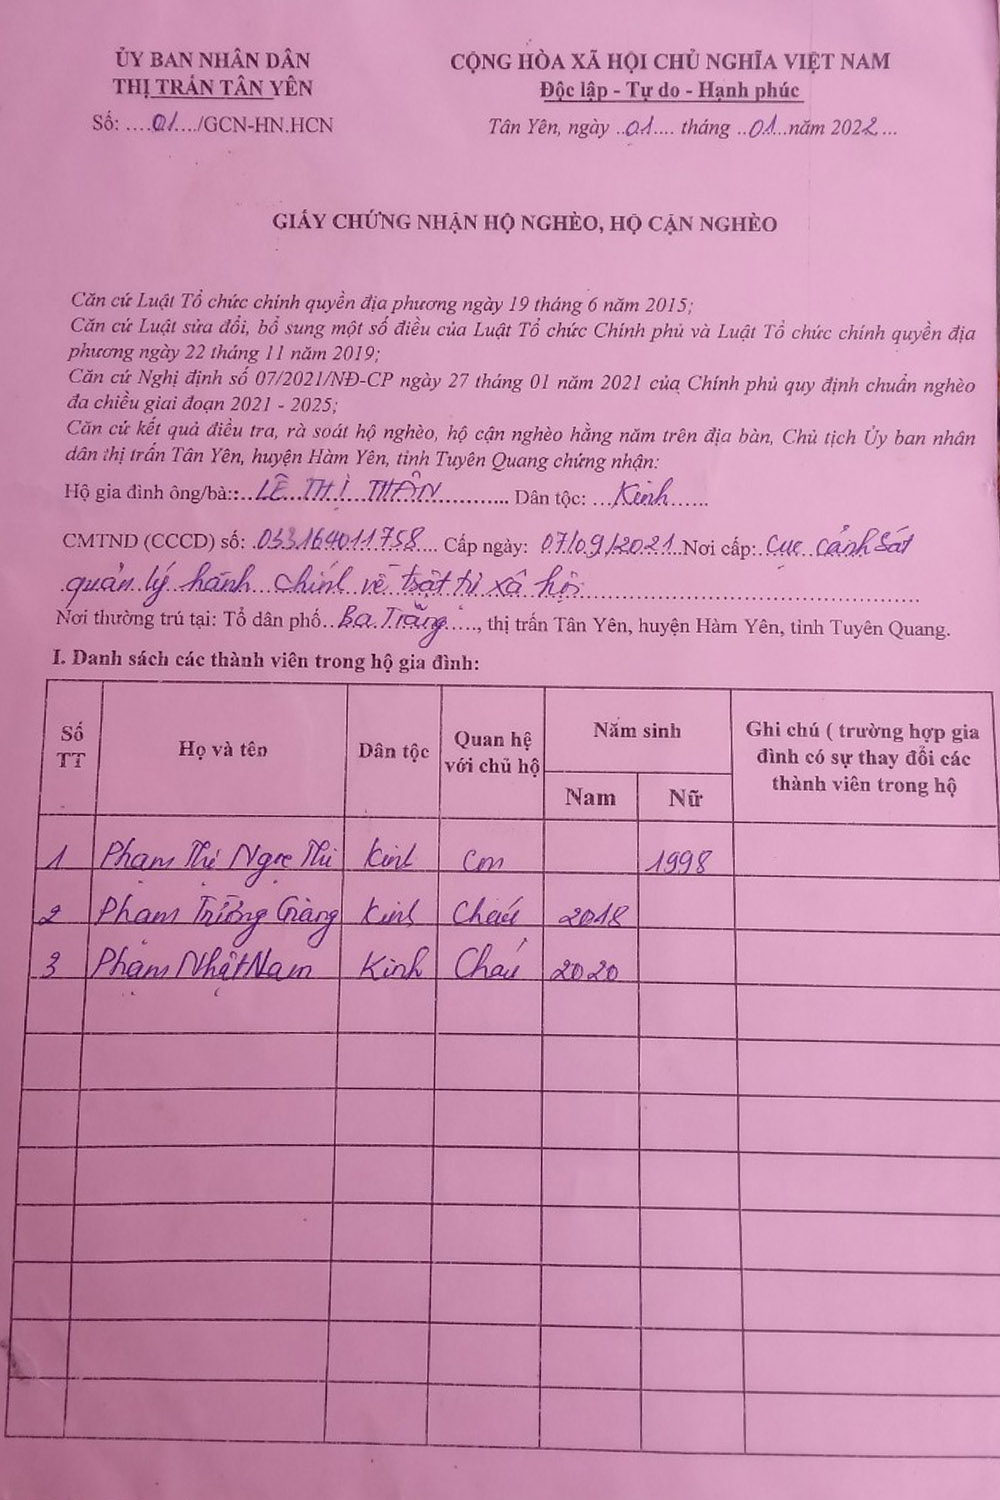 ỦY BAN NHÂN DÂN
THỊ TRẤN TÂN YÊN
Số: ....01..../GCN-HN.HCN
CỘNG HÒA XÃ HỘI CHỦ NGHĨA VIỆT NAM
Độc lập - Tự do - Hạnh phúc
Tân Yên, ngày ..01.... tháng ..01..năm 2022...
GIẤY CHỨNG NHẬN HỘ NGHÈO, HỘ CẬN NGHÈO
Căn cứ Luật Tổ chức chính quyền địa phương ngày 19 tháng 6 năm 2015;
Căn cứ Luật sửa đổi, bổ sung một số điều của Luật Tổ chức Chính phủ và Luật Tổ chức chính quyền địa
phương ngày 22 tháng 11 năm 2019;
Căn cứ Nghị định số 07/2021/NĐ-CP ngày 27 tháng 01 năm 2021 của Chính phủ quy định chuẩn nghèo
đa chiều giai đoạn 2021 - 2025;
Căn cứ kết quả điều tra, rà soát hộ nghèo, hộ cận nghèo hằng năm trên địa bàn, Chủ tịch Ủy ban nhân
dân thị trấn Tân Yên, huyện Hàm Yên, tỉnh Tuyên Quang chứng nhận:
Hộ gia đình ông/bà::...LÊ THỊ THÂN............ Dân tộc: ...Kinh......
CMTND (CCCD) số: 033164011758.... Cấp ngày: 07/09/2021..Nơi cấp:.Cục cảnh sát
quản lý hành chính về trật tự xã hội
Nơi thường trú tại: Tổ dân phố..Ba Trãng....., thị trấn Tân Yên, huyện Hàm Yên, tỉnh Tuyên Quang.
I. Danh sách các thành viên trong hộ gia đình:
Số TT | Họ và tên | Dân tộc | Quan hệ với chủ hộ | Năm sinh | Ghi chú ( trường hợp gia đình có sự thay đổi các thành viên trong hộ
Nam | Nữ
1 Phạm Thị Ngọc Thi Kinh Con 1998
2 Phạm Trường Giang Kinh Cháu 2018
3 Phạm Nhật Nam Kinh Cháu 2020